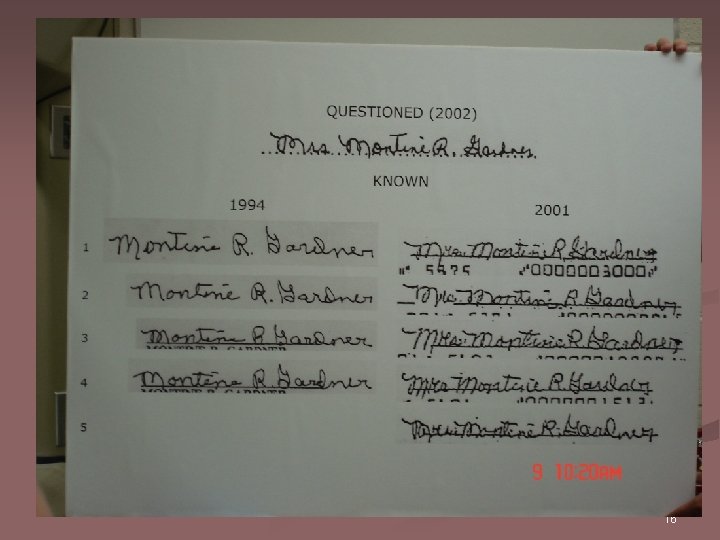 QUESTIONED (2002)
Mrs Montine R. Gardner
KNOWN
1994 2001
1 Montine R. Gardner Mrs. Montine R. Gardner
5575 "0000003000"
2 Montine R. Gardner Mrs. Montine R. Gardner
3 Montine R Gardner Mrs. Montine R. Gardner
4 Montine R Gardner Mrs Montine R. Gardner
5 Mrs. Montine R. Gardner
9 10:20AM
16